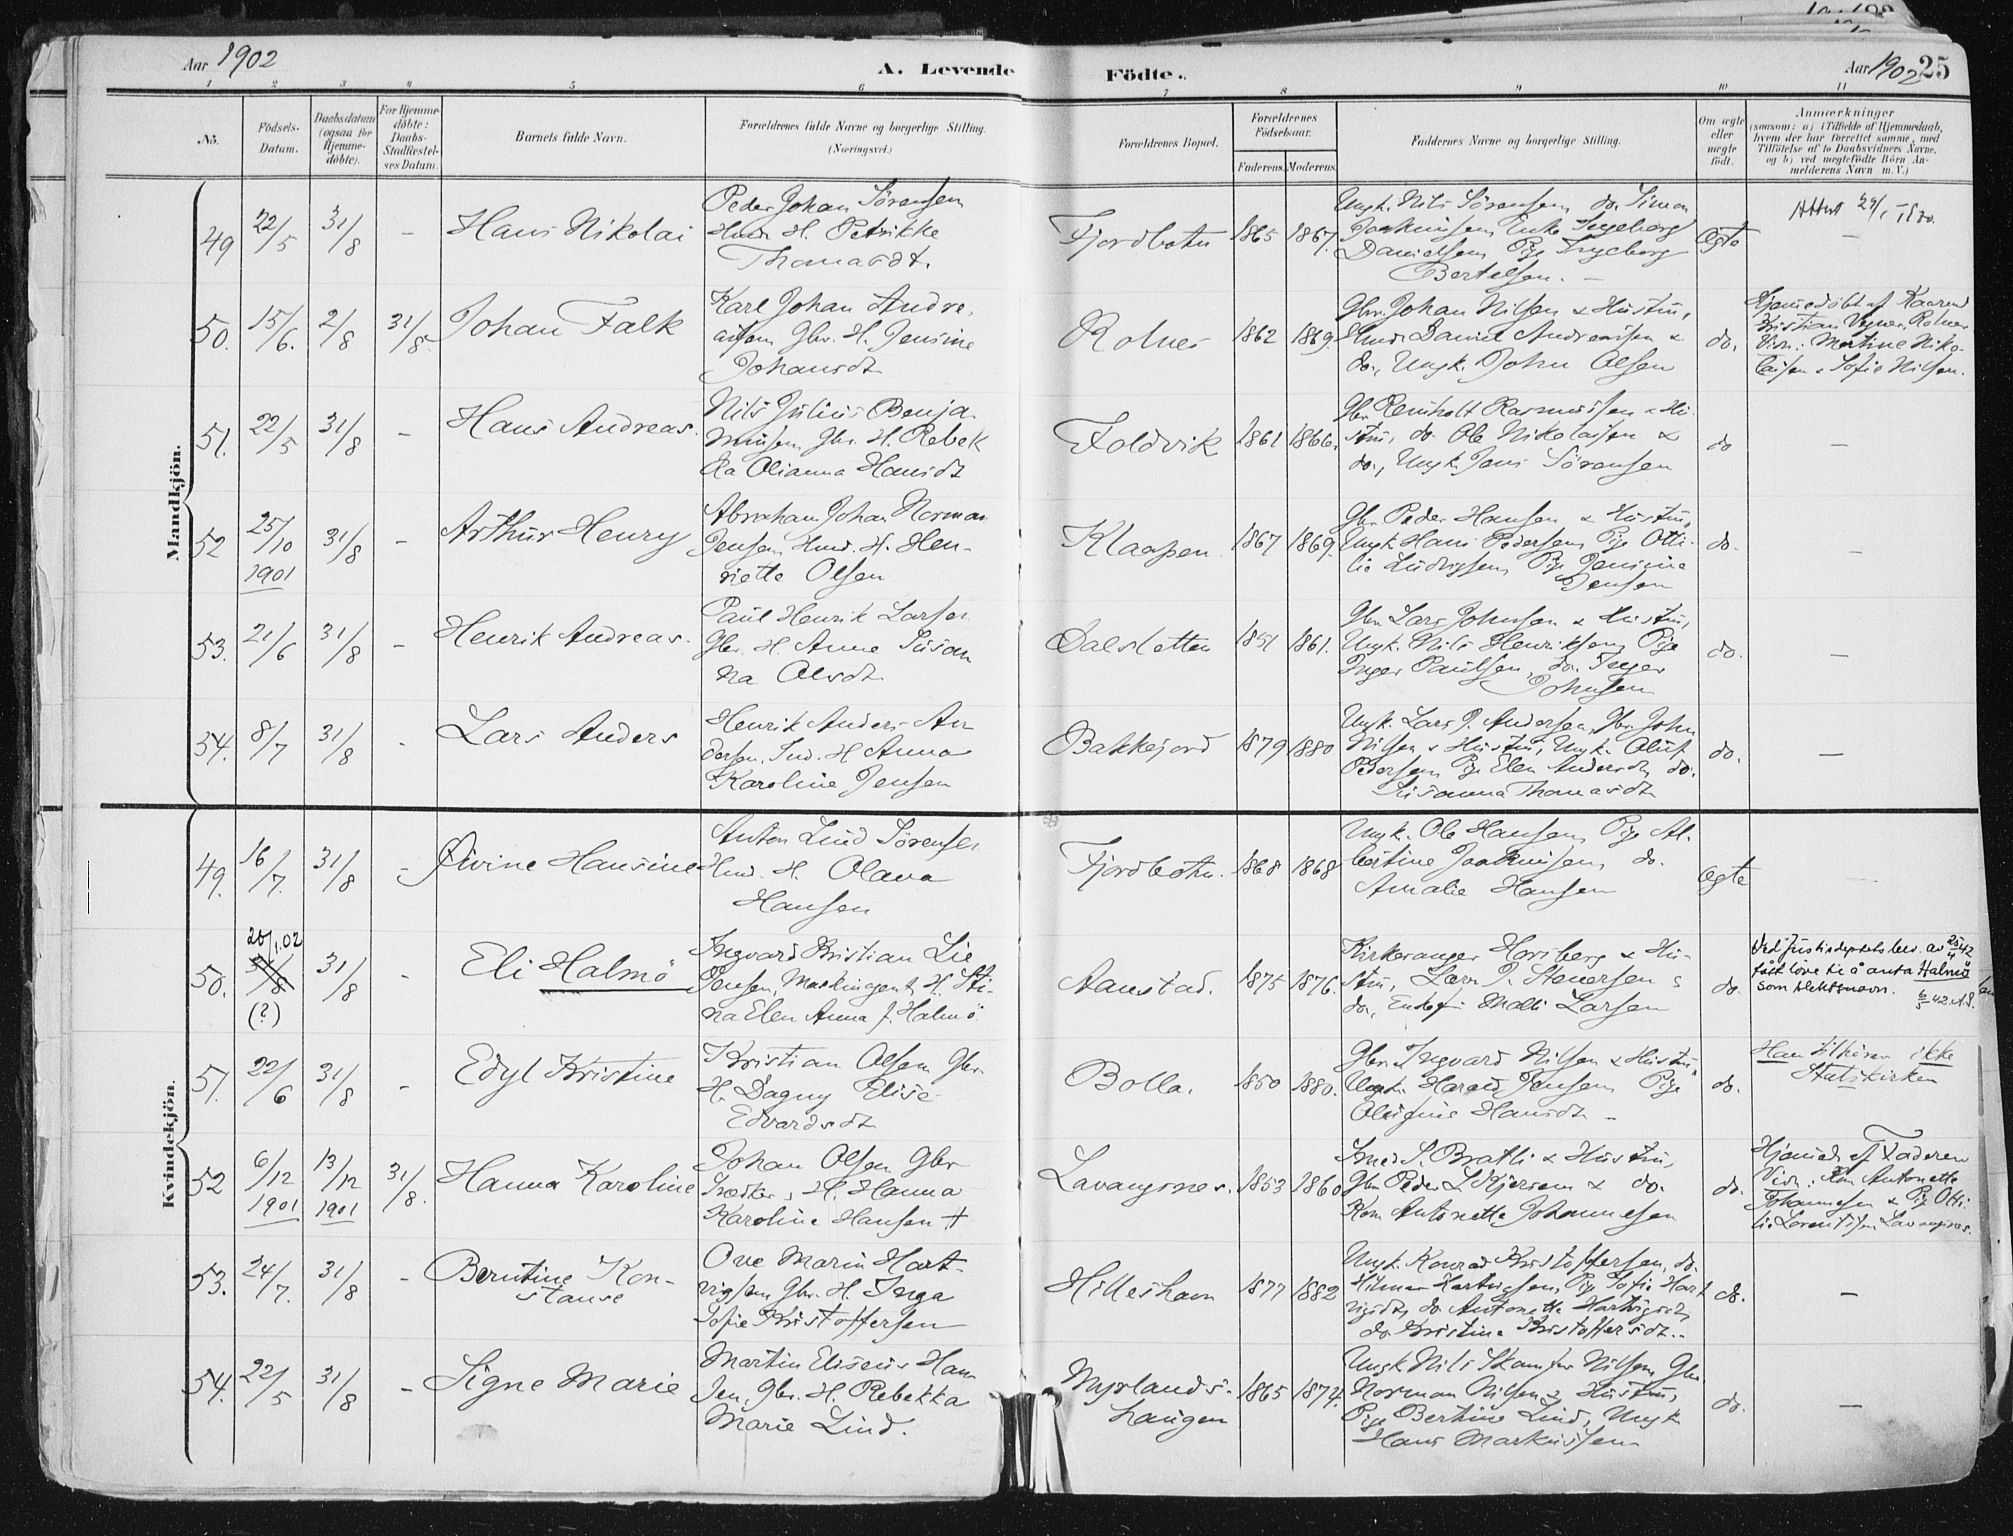 Aar 1902
A. Levende Födte.
Aar 1902 25
1 2 3 4 5 6 7 8 9 10 11
No.
Födsels-Datum.
Daabsdatum (ogsaa for Hjemmedöbte).
For Hjemmedöbte: Daabs-Stadfæstelses Datum.
Barnets fulde Navn.
Forældrenes fulde Navne og borgerlige Stilling. (Næringsvei.)
Forældrenes Bopæl.
Forældrenes Födselsaar.
Faderens. Moderens.
Faddernes Navne og borgerlige Stilling.
Om ægte eller uægte födt.
Anmærkninger
(saasom: a) i Tilfælde af Hjemmedaab,
hvem der har forrettet samme, med
Tilföielse af to Daabsvidners Navne,
og b) ved uægtefödte Börn An-
melderens Navn m. V.)
Mandkjön.
49 22/5 31/8 - Hans Nikolai
Peder Johan Sörensen
H. Petrikke
Thomasdt.
Fjordbotn 1865 1867.
Ungk. Nils Sörensen, do. Simon
Joakimsen, Enke Ingeborg
Danielsen, Pige Ingeborg
Bertelsen. -
Ægte
Attest 29/
50. 15/6. 2/8 31/8. Johan Falk
Karl Johan Andre-
assen Gbr. H. Jensine
Johansdt
Rolnes 1862 1869.
Gbr. Johan Nilsen & Hustru,
Daniel Andreassen &
do., Ungk. John Olsen
do.
Hjemmedöbt af
Kristian Rolnes
Vidn: Martine Niko-
laisen & Sofie Nilsen.
51. 22/5 31/8 - Hans Andreas.
Nils Julius Benja-
minsen Gbr. H. Rebek
ka Olianna Hansdt
Foldvik 1861 1866.
Gbr. Reinholt Rasmussen & Hu-
stru, do. Ole Nikolaisen &
do., Ungk. Jens Sörensen
do -
52 25/10 1901 31/8 - Arthur Henry
Abraham Johan Norman
Jensen, H. Hen-
riette Olsen
Klaapen. 1867 1869.
Gbr Peder Hansen & Hustru,
Ungk. Hans Pedersen, Pige Otti-
lie Ludvigsen, Pige Jensine
Jensen
do. -
53. 21/6 31/8 - Henrik Andreas.
Paul Henrik Larsen
Gbr. H. Anne Susan
na Olsdt
Dalsletten 1851 1861.
Gbr. Lars Johnsen & Hustru,
Ungk. Nils Henriksen, Pige
Inger Paulsen, do. Inger
Johnsen
do. -
54. 8/7 31/8 - Lars Anders
Henrik Anders An
dersen, Ind. H Anna
Karoline Jensen
Bakkejord 1879 1880
Ungk. Lars P. Andersen, Gbr. John
Nilsen & Hustru, Ungk. Oluf
Pedersen, Pige Elen Andersdt, do.
Susanna Thomasdt
do. -
Kvindekjön.
49. 16/7. 31/8 - Öivine Hansine
Anton Lind Sörensen
H. Olava
Hansen
Fjordbotn. 1868 1868
Ungk. Ole Hansen, Pige Al-
bertine Joakimsen, do.
Amalie Hansen
ægte -
50. 20/1.02 (?) 31/8 - Eli Halmö
Ingvard Kristian Lie
Jensen, Maskinagent, H. Sti-
na Elen Anna f. Halmö
Aanstad. 1875 1876.
Kirkesanger Horsberg & Hu-
stru, P. Stenersen &
do, Malli Larsen
do.
Ved Justisdeptets bev. av 25/4 42
fått löve til å anta Halmö
som slektsnavn. 6/5 42.
51. 22/6 31/8 - Edyl Kristine
Kristian Olsen Gbr.
H. Dagny Elise
Edvardsdt
Bolla. 1850 1880.
Gbr. Ingvard Nilsen & Hustru,
Ungk. Harald Jensen, Pige
Hansdt -
do.
Han tilhörer ikke
Statskirken
52 6/12 1901 13/12 1901 31/8. Hanna Karoline
Johan Olsen Gbr
Snedker, H. Hanna
Karoline Hansen +
Lavangsnes. 1853 1860
Smed S. Bratli & Hustru,
Gbr. Peder & do.
Kone Antonette Johannesen
do.
Hjemmed. af Faderen
Vidn: Kone Antonette
Johannesen & Pige Otti-
lie Lorentsen Lavangsnes.
53. 24/7. 31/8 - Berntine Kon-
stanse
Ove Marin Hart-
vigsen Gbr. H. Inga
Sofie Kristoffersen
Hilleshavn 1877 1882
Ungk. Konrad Kristoffersen, do.
Hilmar Hartvigsen, Pige Sofie Hart
vigsdt, do. Antonette Hartvigsdt,
do. Kristine Kristoffersdt. -
do. -
54. 22/5 31/8 - Signe Marie
Martin Eliseus Han-
sen, Gbr. H. Rebekka
Marie Lind.
Myrlands-
haugen 1865 1874.
Ungk Nils Nilsen, Gbr
Norman Nilsen & Hustru,
Pige Bertine Lind, Ungk
Hans Markussen
do. -